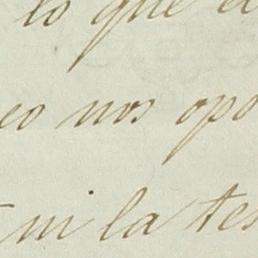 lo que
nos opo
ni la tes